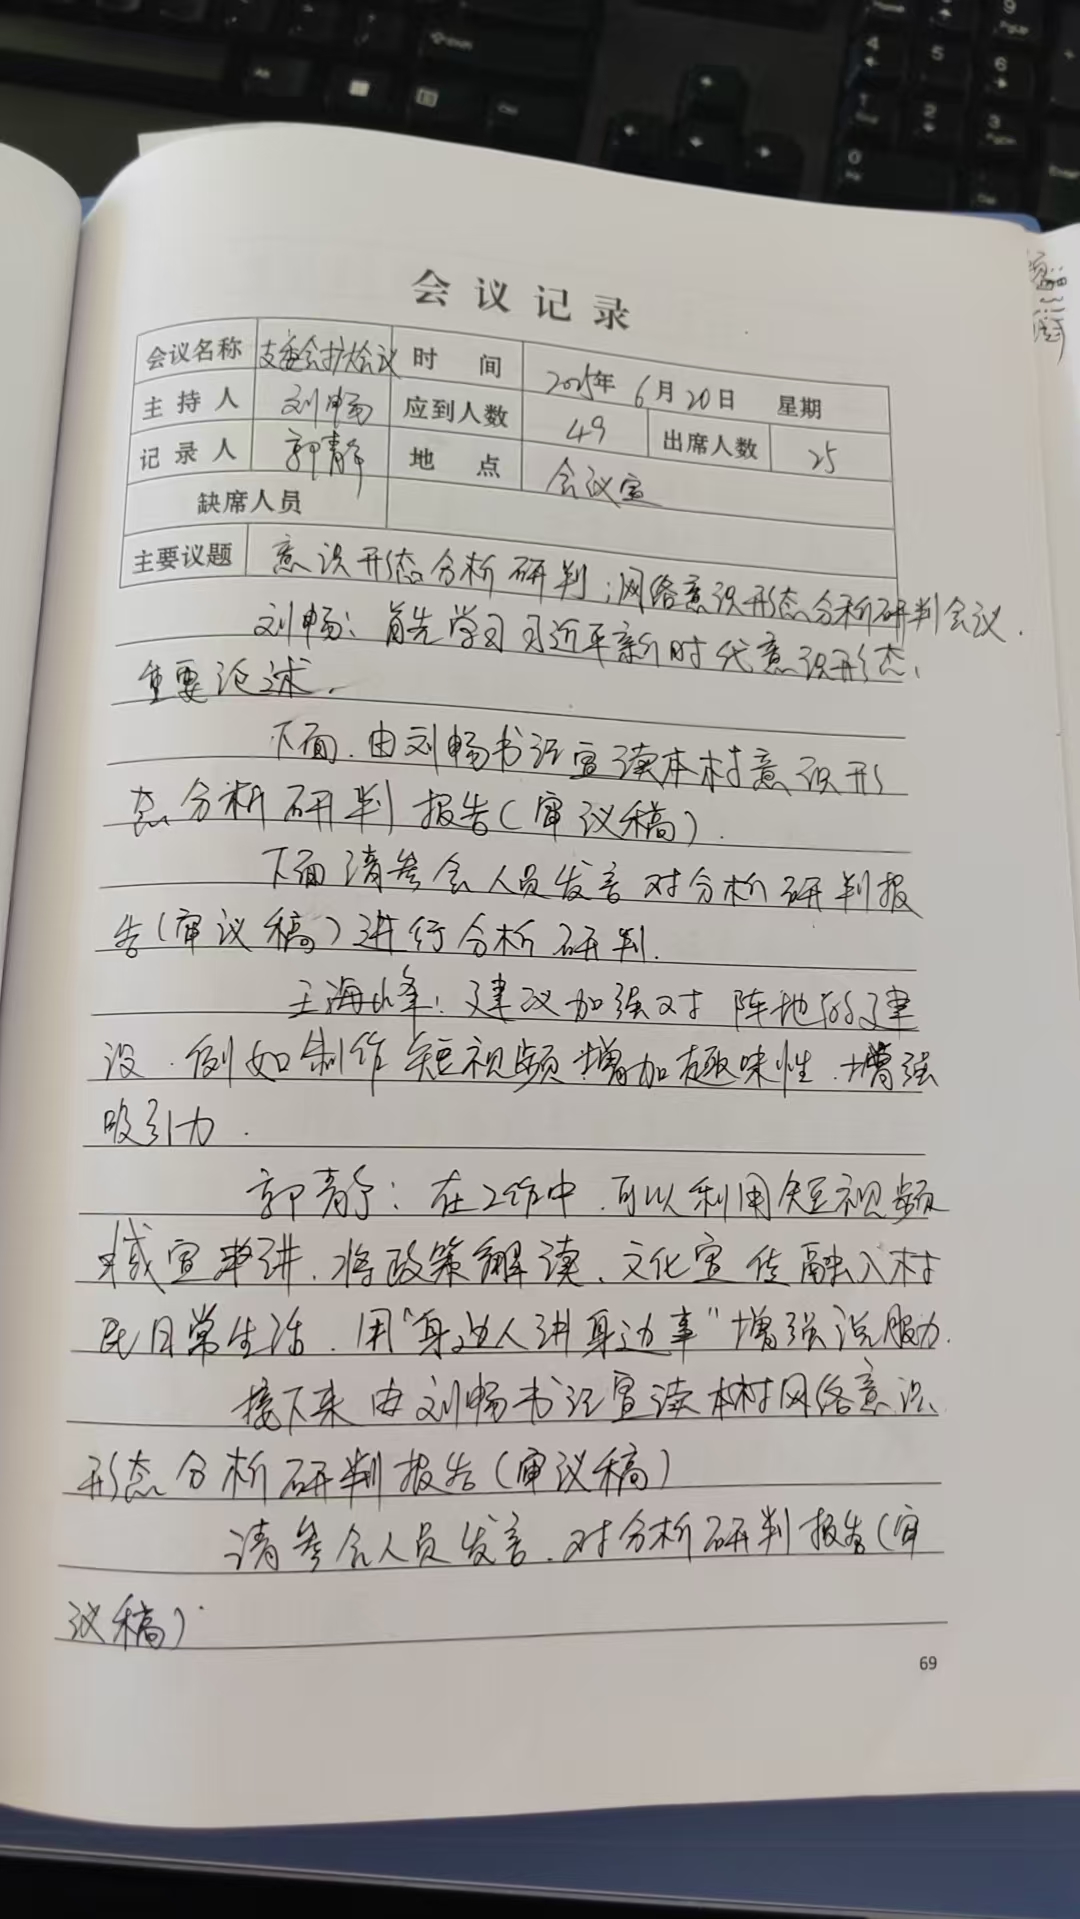 会议记录
会议名称 支委会扩大会议 时间 2025年6月20日 星期
主持人 刘畅 应到人数 49 出席人数 25
记录人 郭青 地点 会议室
缺席人员
主要议题 意识形态分析研判;网络意识形态分析研判会议.
刘畅:首先学习习近平新时代意识形态、
重要论述.
下面.由刘畅书记宣读本村意识形
态分析研判报告(审议稿).
下面请参会人员发言对分析研判报
告(审议稿)进行分析研判.
王海峰:建议加强对阵地的建
设.例如制作短视频增加趣味性.增强
吸引力.
郭青:在工作中.可以利用短视频
或宣讲.将政策解读、文化宣传融入村
民日常生活.用"身边人讲身边事"增强说服力.
接下来由刘畅书记宣读本村网络意识
形态分析研判报告(审议稿)
请参会人员发言.对分析研判报告(审
议稿).
69